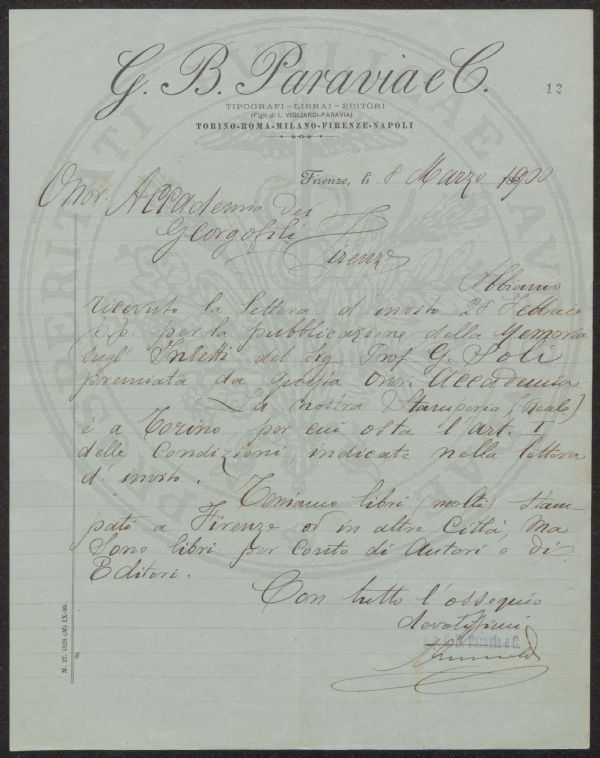 G. B. Paravia e C.
13
TIPOGRAFI - LIBRAI - EDITORI
(Figli di I. VIGLIARDI-PARAVIA)
TORINO-ROMA-MILANO-FIRENZE-NAPOLI
Firenze, li 8 Marzo 1900
Onor. Accademia dei
Georgofili
Firenze
Abbiamo
ricevuto la lettera d'invito 28 Febbraio
p.p. per la pubblicazione della Memoria
sugl' Insetti del Sig Prof G. Soli
premiata da questa Onor. Accademia
La nostra Stamperia (Reale)
è a Torino, per cui osta l'art. I
delle Condizioni indicate nella lettera
d'invito.
Teniamo libri (molti) stam-
pati a Firenze od in altre Città, Ma
Sono libri per conto di Autori o di
Editori.
Con tutto l'ossequio
devotissimi
G. B. Paravia e C.
M. 27. 1528 (M) IX-99.